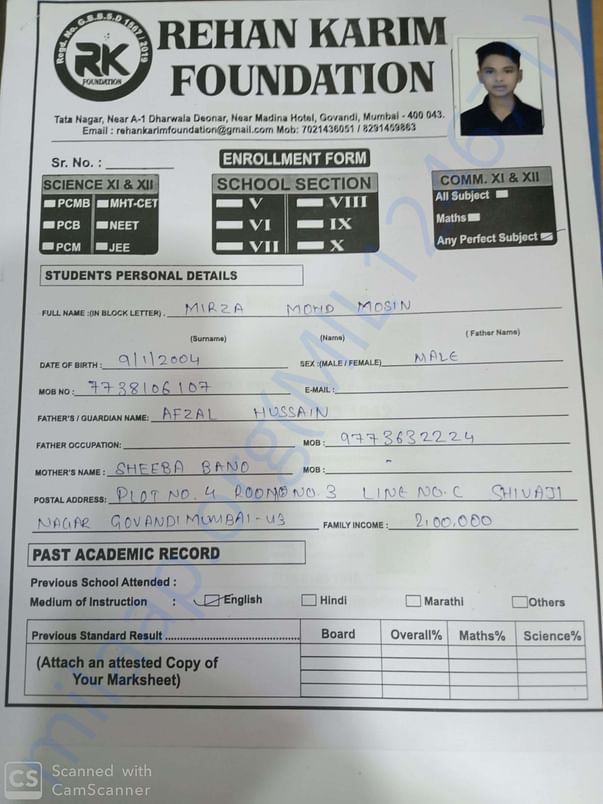 Regd. No. G.B.B.S.D 1567 / 2019
RK
FOUNDATION
REHAN KARIM
FOUNDATION
Tata Nagar, Near A-1 Dharwala Deonar, Near Madina Hotel, Govandi, Mumbai - 400 043.
Email : rehankarimfoundation@gmail.com Mob: 7021436051 / 8291459863
Sr. No. :
ENROLLMENT FORM
SCIENCE XI & XII
PCMB MHT-CET
PCB NEET
PCM JEE
SCHOOL SECTION
V VIII
VI IX
VII X
COMM. XI & XII
All Subject
Maths
Any Perfect Subject
STUDENTS PERSONAL DETAILS
FULL NAME :(IN BLOCK LETTER) . MIRZA MOHD MOSIN
(Surname) (Name) ( Father Name)
DATE OF BIRTH : 9/1/2004 SEX :(MALE / FEMALE) MALE
MOB NO : 7738106107 E-MAIL :
FATHER'S / GUARDIAN NAME: AFZAL HUSSAIN
FATHER OCCUPATION: MOB : 9773632224
MOTHER'S NAME : SHEEBA BANO MOB : -
POSTAL ADDRESS: PLOT NO. 4 ROOM NO. 3 LINE NO. C SHIVAJI
NAGAR GOVANDI MUMBAI - 43 FAMILY INCOME : 2,00,000
PAST ACADEMIC RECORD
Previous School Attended :
Medium of Instruction : English Hindi Marathi Others
Previous Standard Result Board Overall% Maths% Science%
(Attach an attested Copy of
Your Marksheet)
CS Scanned with
CamScanner